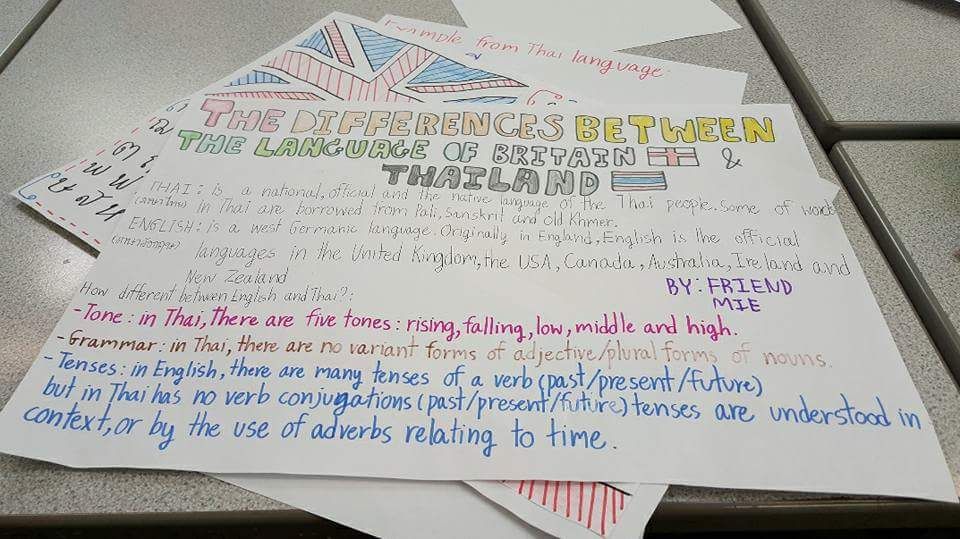 Example from Thai language:
THE DIFFERENCES BETWEEN
THE LANGUAGE OF BRITAIN &
THAILAND
THAI: Is a national, official and the native language of the Thai people. Some of words
(ภาษาไทย) In Thai are borrowed from Pali, Sanskrit and Old Khmer.
ENGLISH: Is a west Germanic language. Originally in England, English is the official
(ภาษาอังกฤษ) languages in the United Kingdom, the USA, Canada, Australia, Ireland and
New Zealand
BY: FRIEND
MIE
How different between English and Thai?:
-Tone: in Thai, there are five tones: rising, falling, low, middle and high.
-Grammar: in Thai, there are no variant forms of adjective/plural forms of nouns.
-Tenses: in English, there are many tenses of a verb (past/present/future)
but in Thai has no verb conjugations (past/present/future) tenses are understood in
context, or by the use of adverbs relating to time.